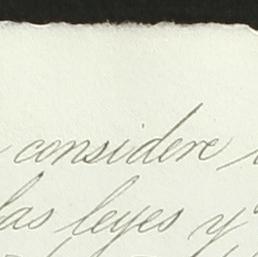 considere
las leyes y